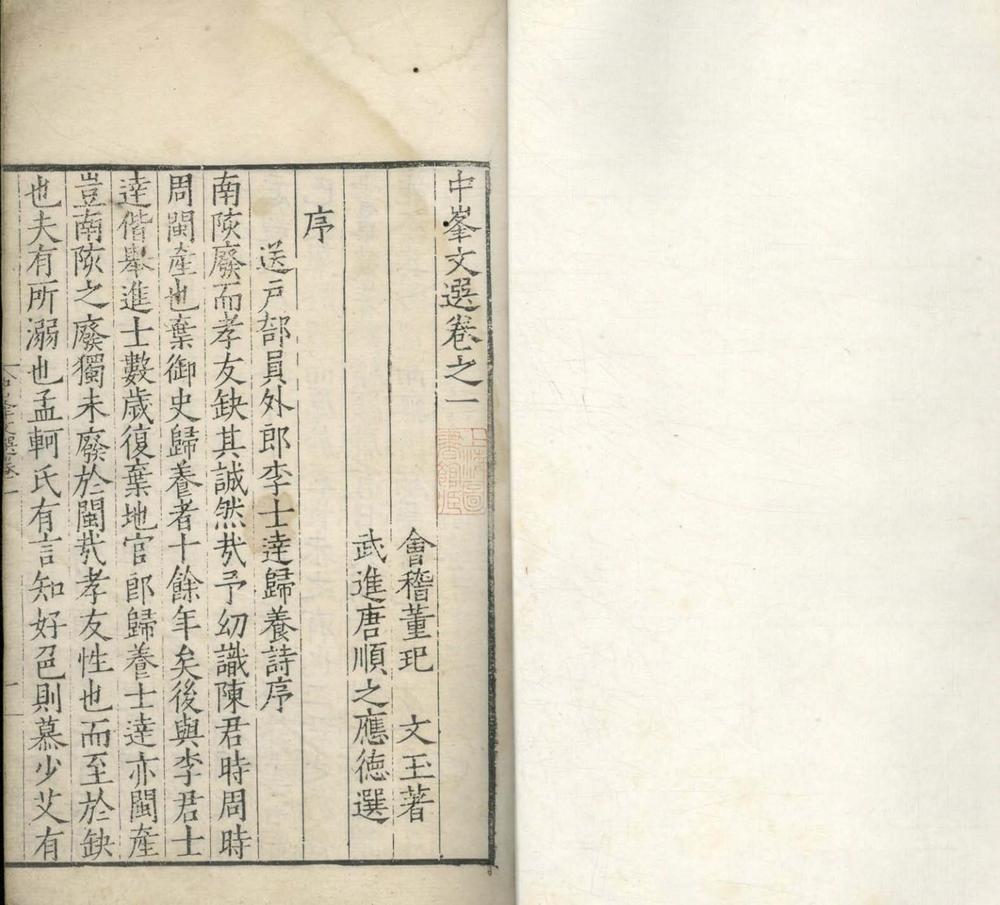 中峯文選卷之一
會稽董玘 文玉著
武進唐順之應德選
序
送戶部員外郎李士達歸養詩序
南陔廢而孝友缺其誠然㢤予幼識陳君時周時
周閩產也棄御史歸養者十餘年矣後與李君士
達偕舉進士數歲復棄地官郎歸養士達亦閩產
豈南陔之廢獨未廢於閩㢤孝友性也而至於缺
也夫有所溺也孟軻氏有言知好色則慕少艾有